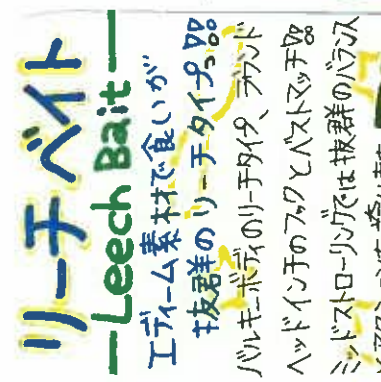 リーチベイト
Leech Bait
エディーム素材で食いが
抜群のリーチタイプ!!
バルキーボディのリーチタイプ、ラウンド
ヘッドインチのフックとベストマッチ!!
ミッドストローリングでは抜群のバランス